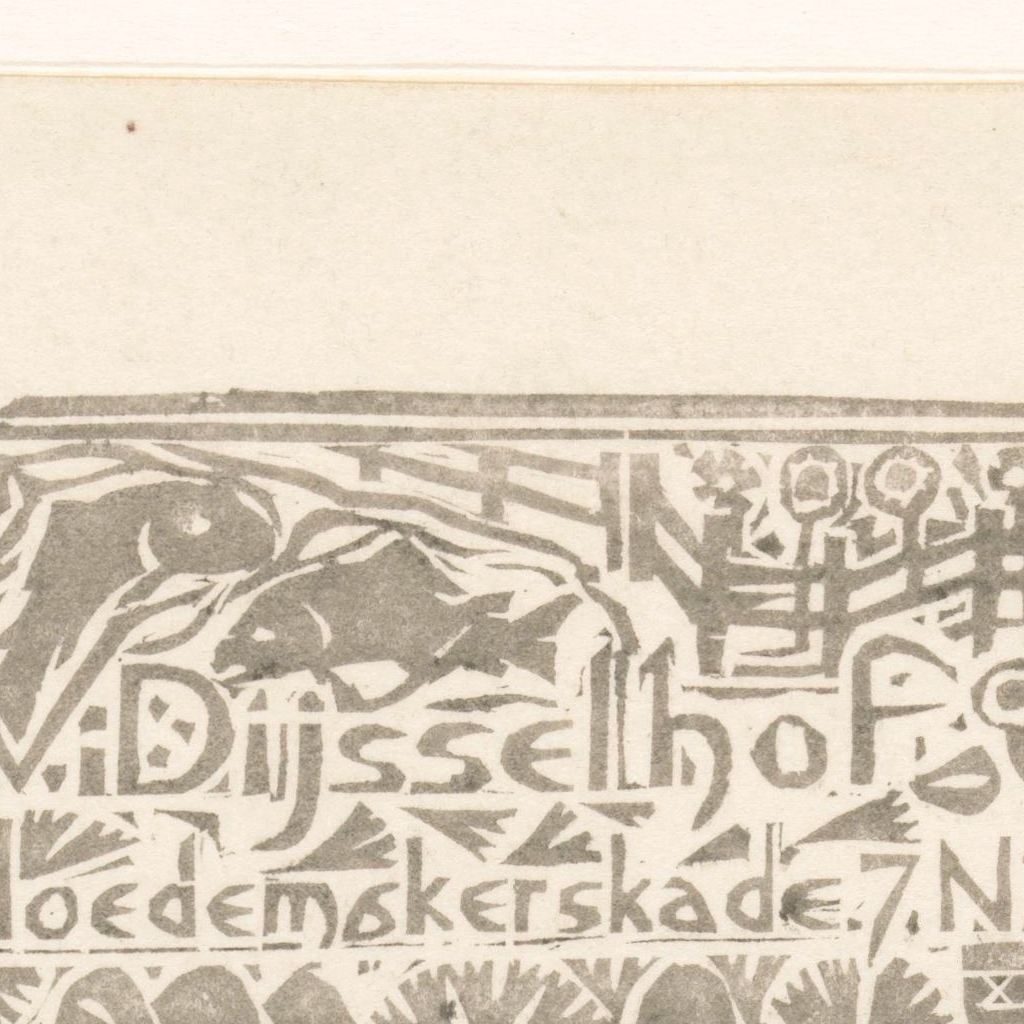 W. Dijsselhof
loedemakerskade 7 N